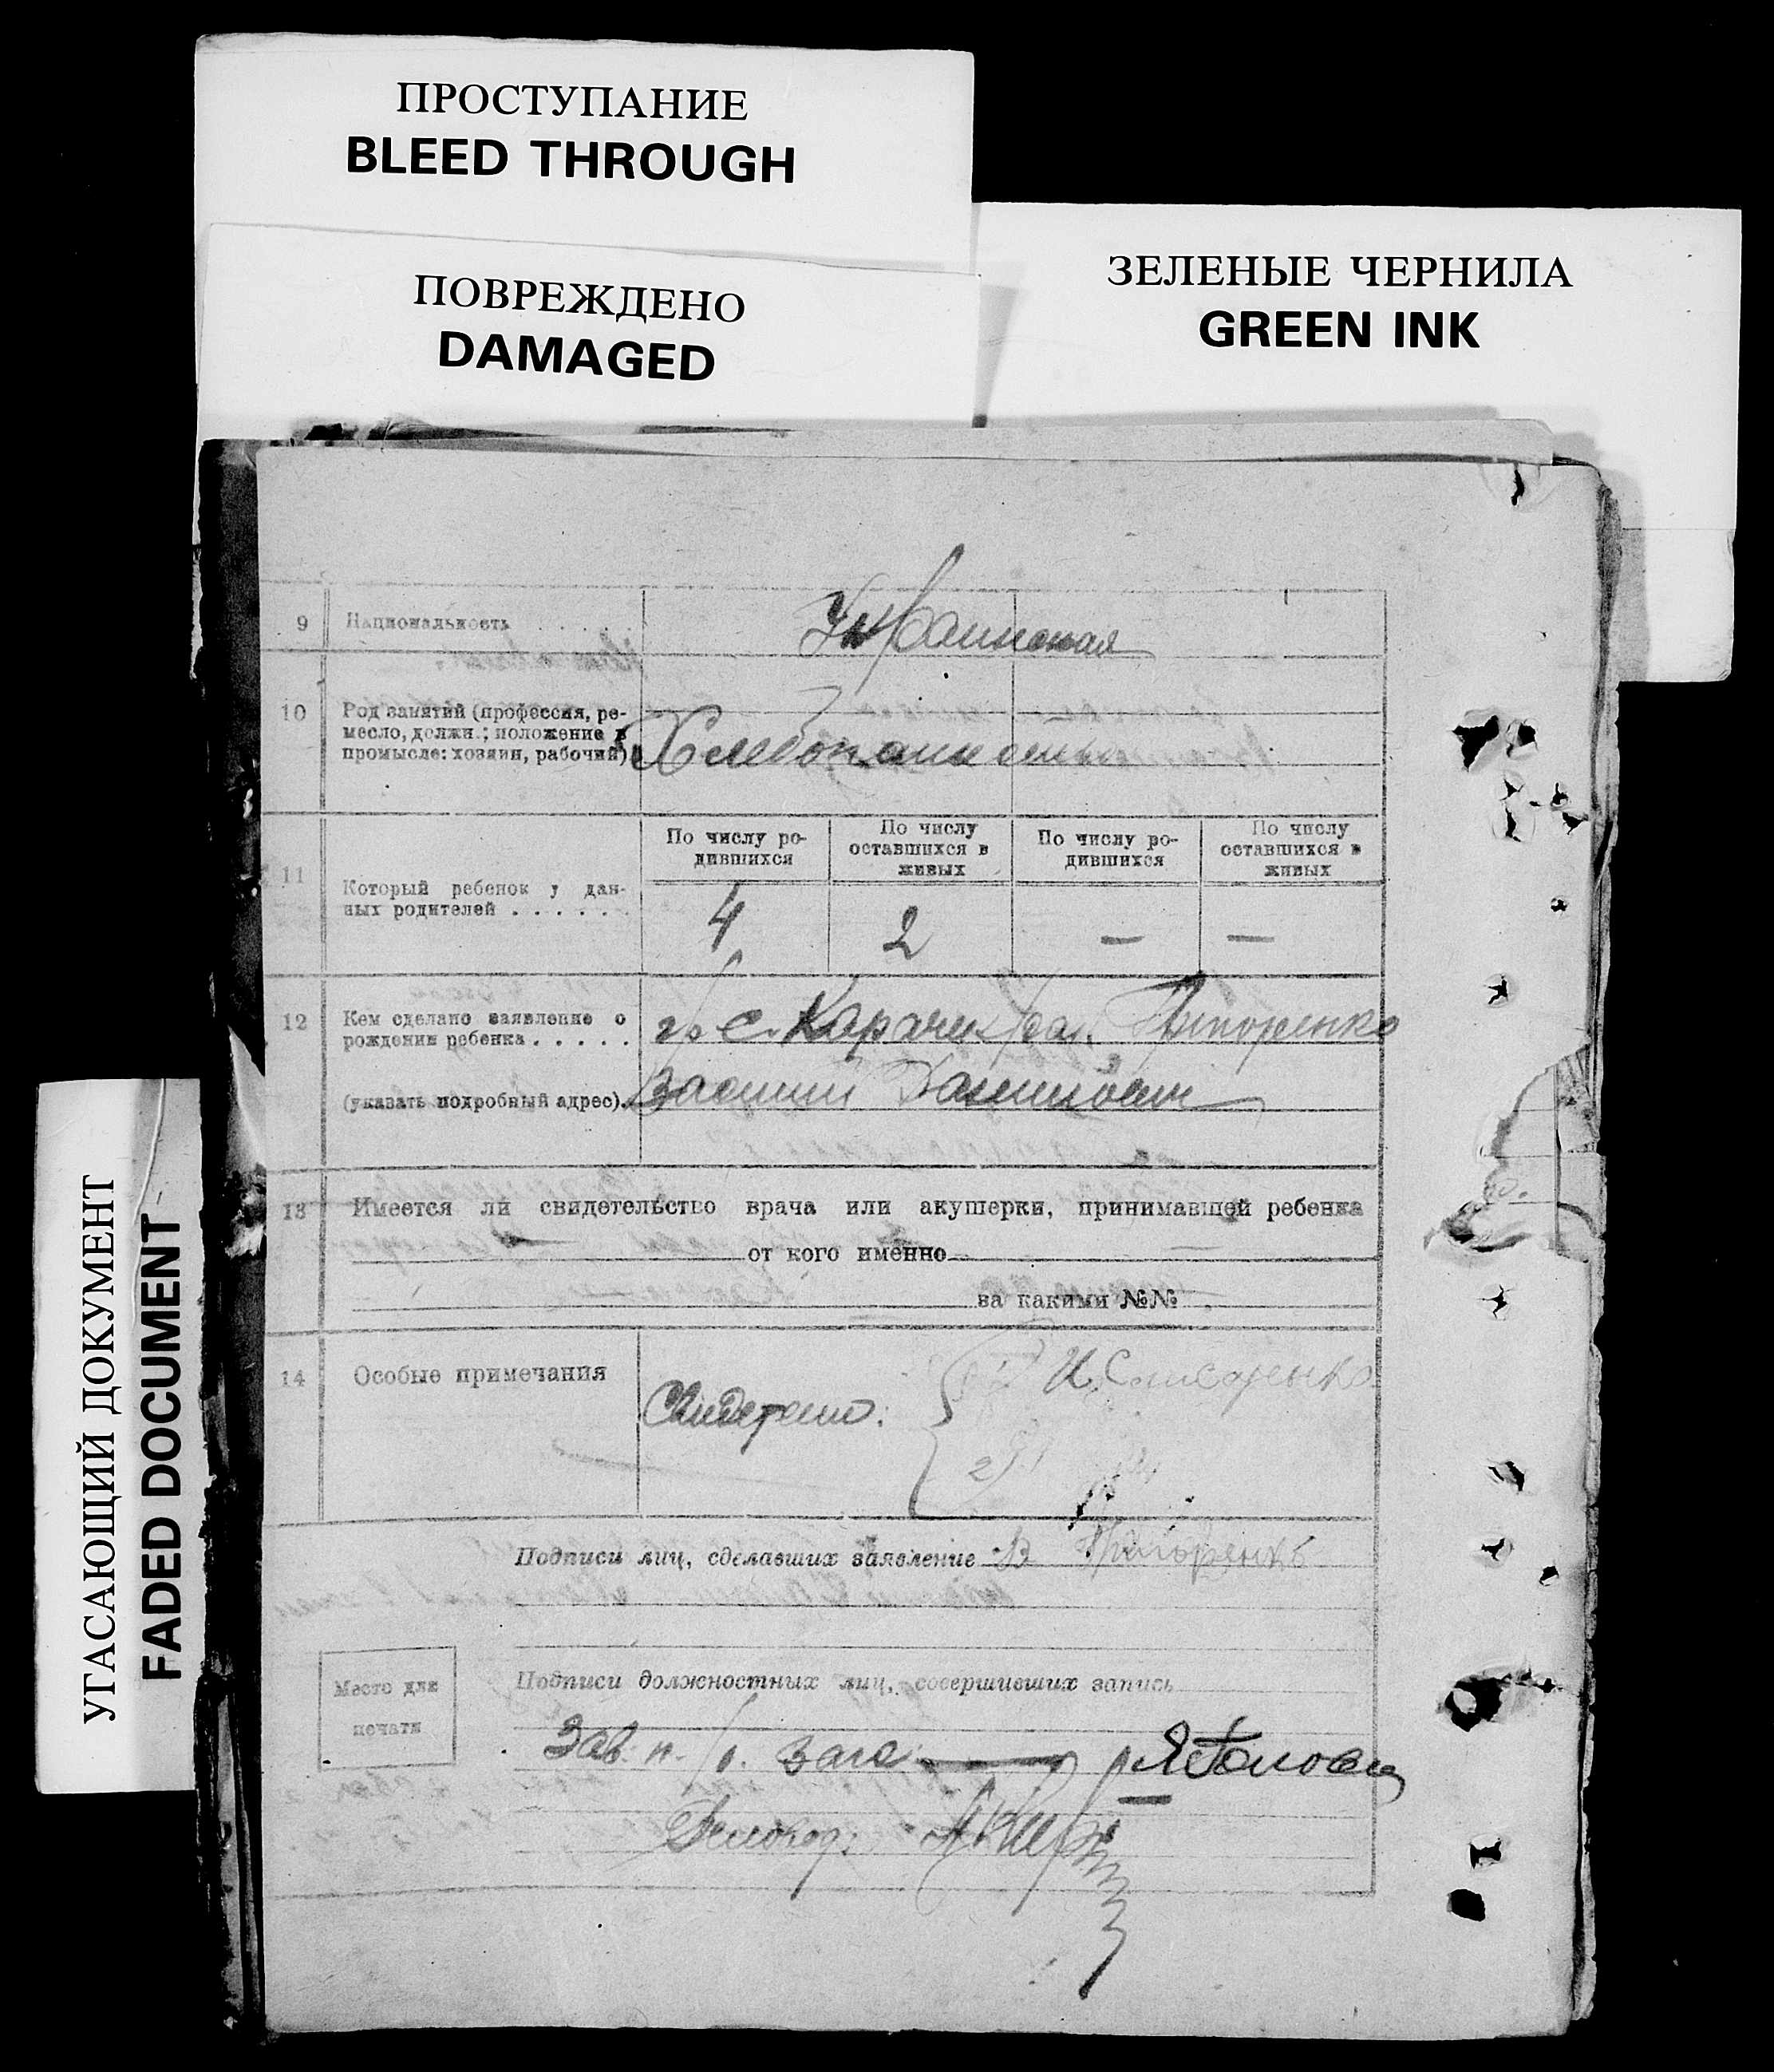 ПРОСТУПАНИЕ
BLEED THROUGH
ПОВРЕЖДЕНО
DAMAGED
ЗЕЛЕНЫЕ ЧЕРНИЛА
GREEN INK
УГАСАЮЩИЙ ДОКУМЕНТ
FADED DOCUMENT
9 Национальность . . . . . Украинская
10 Род занятий (профессия, ре-
месло, должн.; положение в
промысле: хозяин, рабочий) Хлебопашество
По числу ро-
дившихся
По числу
оставшихся в
живых
По числу ро-
дившихся
По числу
оставшихся в
живых
11 Который ребенок у дан-
ных родителей . . . . . .
4 2 — —
12 Кем сделано заявление о
рождении ребенка . . . . . гр с.
(указать подробный адрес). Василий
13 Имеется ли свидетельство врача или акушерки, принимавшей ребенка
от кого именно
за какими №№
14 Особые примечания
И.
2)
Подписи лиц, сделавших заявление В
Подписи должностных лиц, совершивших запись
Место для
печати
Зав. п/о. Загс
Деловод: